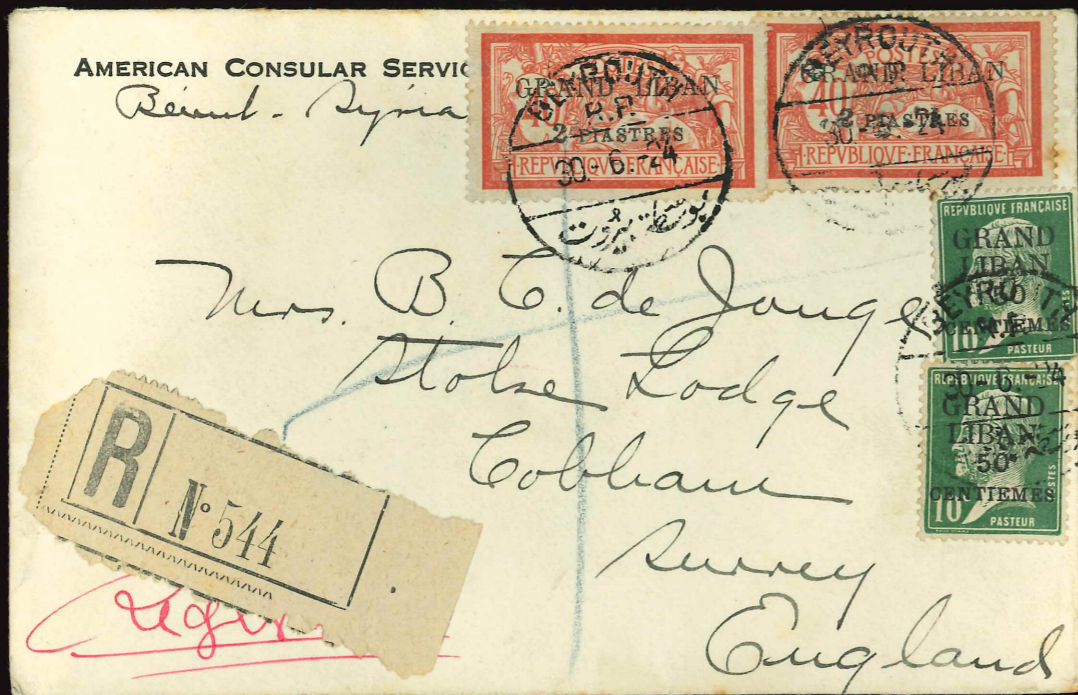 AMERICAN CONSULAR SERVIC
Beirut. Syria
GRAND LIBAN
2 PIASTRES
REPVBLIQVE FRANÇAISE
BEYROUTH
R.P.
30.-6.-24
بيروت
GRAND LIBAN
40
2 PIASTRES
REPVBLIQVE FRANÇAISE
BEYROUTH
REPVBLIQVE FRANÇAISE
GRAND
LIBAN
50
CENTIEMES
10
PASTEUR
BEYROUTH
REPVBLIQVE FRANÇAISE
GRAND
LIBAN
50
CENTIEMES
10
POSTES
PASTEUR
Mrs. B. C. de Jonge
Stoke Lodge
Cobham
Surrey
England
R
Nº 544